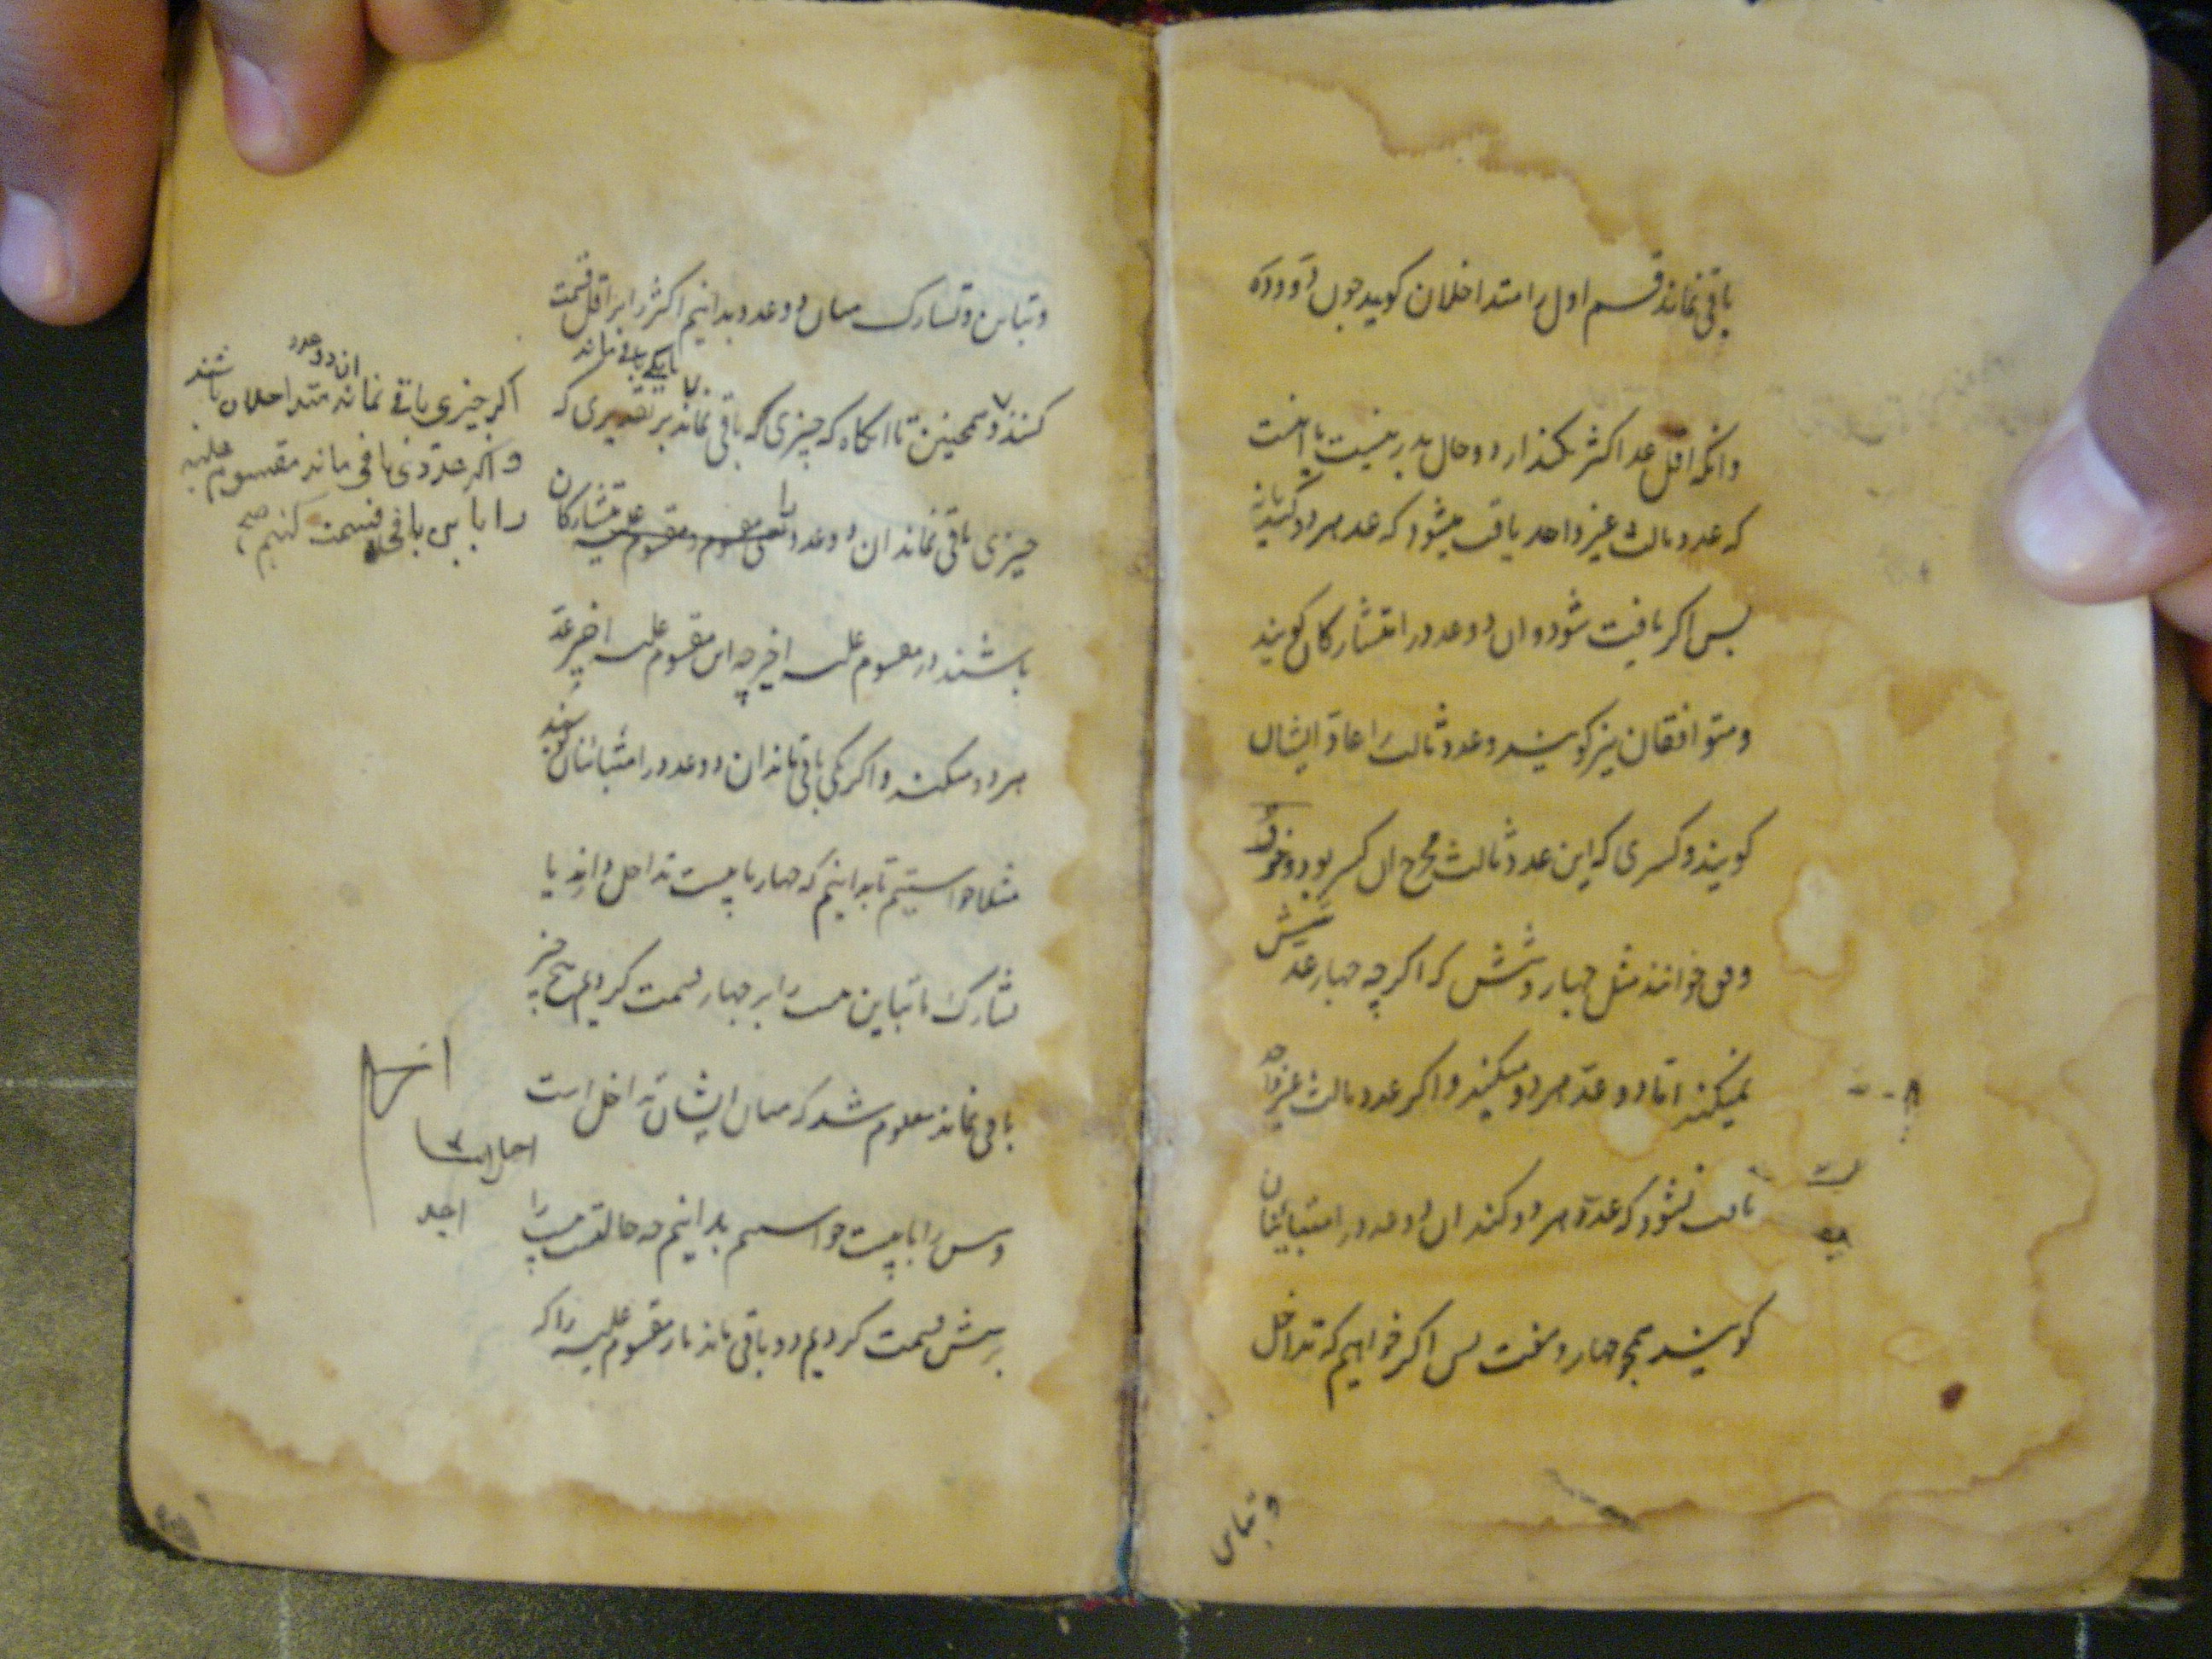 باقی نماند قسم اول را متداخلان کویند چون دو و ده
وانکه اقل عد اکثر نکند از دو حال بدر نیست یا هست
که عدد ثالث غیر واحد یافت میشود که عد هر دو کند یا نه
پس اکر یافت شود و ان دو عدد را متشارکان کویند
و متوافقان نیز کویند و عدد ثالث را عاد ایشان
کویند و کسری که این عدد ثالث مخرج ان کسر بود
وفق خوانند مثل چهار و شش که اکرچه چهار عد شش
نمیکند اما دو عد هر دو میکند و اکر عدد ثالث غیر واحد
یافت نشود که عد هر دو کند ان دو عدد را متباینان
کویند همچو چهار و هفت پس اکر خواهیم که تداخل
و تباین
و تباین و تشارک میان دو عدد بدانیم اکثر را بر اقل قسمت
کنند و همچنین تا انکاه که چیزی که باقی نماند بر تقدیری که
یا یکی باقی ماند
چیزی باقی نماند ان دو عدد متشارکان
باشند در مقسوم علیه اخیر چه این مقسوم علیه اخیر عد
هر دو میکند و اکر یکی باقی ماند ان دو عدد را متباینان کویند
مثلا خواستیم تا بدانیم که چهار با بیست تداخل دارند یا
تشارک یا تباین بیست را بر چهار قسمت کردیم هیچ چیز
باقی نماند معلوم شد که میان ایشان تداخل است
و شش را با بیست خواستیم بدانیم چه حالتست بیست را
بر شش قسمت کردیم دو باقی ماند باز مقسوم علیه را که
اکر چیزی باقی نماند ان دو عدد متداخلان باشند
و اکر عددی باقی ماند مقسوم علیه
را با این باقی قسمت کنیم صح